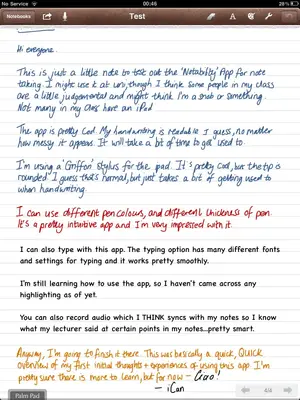 No Service
00:46
28%
Notebooks
Test
Hi everyone.
This is just a little note to test out the 'Notability' App for note
taking. I might use it at uni, though I think some people in my class
are a little judgemental and might think I'm a snob or something.
Not many in my class have an iPad
The app is pretty cool. My handwriting is readable I guess, no matter
how messy it appears. It will take a bit of time to get used to
I'm using a 'Griffin' stylus for the pad. It's pretty cool, but the tip is
rounded. I guess that's normal, but just takes a bit of getting used to
when handwriting
I can use different pen colours, and different thickness of pen.
It's a pretty intuitive app and I'm very impressed with it.
I can also type with this app. The typing option has many different fonts
and settings for typing and it works pretty smoothly.
I'm still learning how to use the app, so I haven't came across any
highlighting as of yet.
You can also record audio which I THINK syncs with my notes so I know
what my lecturer said at certain points in my notes...pretty smart.
Anyway, I'm going to finish it there. This was basically a quick, QUICK
overview of my first initial thoughts + experiences of using this app I'm
pretty sure there is more to learn, but for now –
– iCan
Palm Pad
4/4